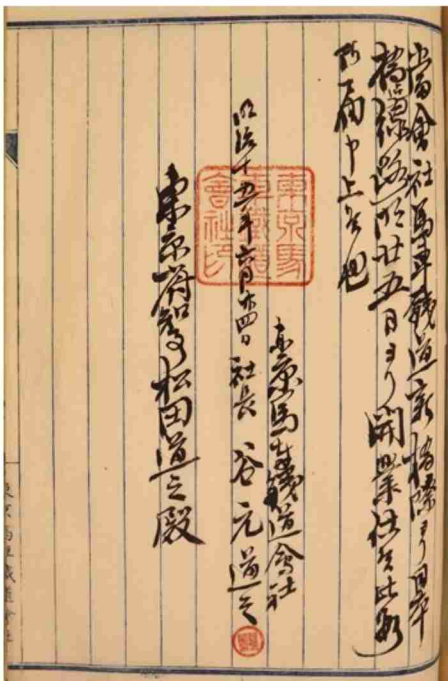 當會社馬車鐵道新橋際ヨリ日本
橋線路明廿五日ヨリ開業仕候此段
御届申上候也
東京馬車鐵道會社
明治十五年六月廿四日 社長 谷元道之
東京馬
車鐵道
會社印
東京府知事松田道之殿
東京馬車鐵道會社